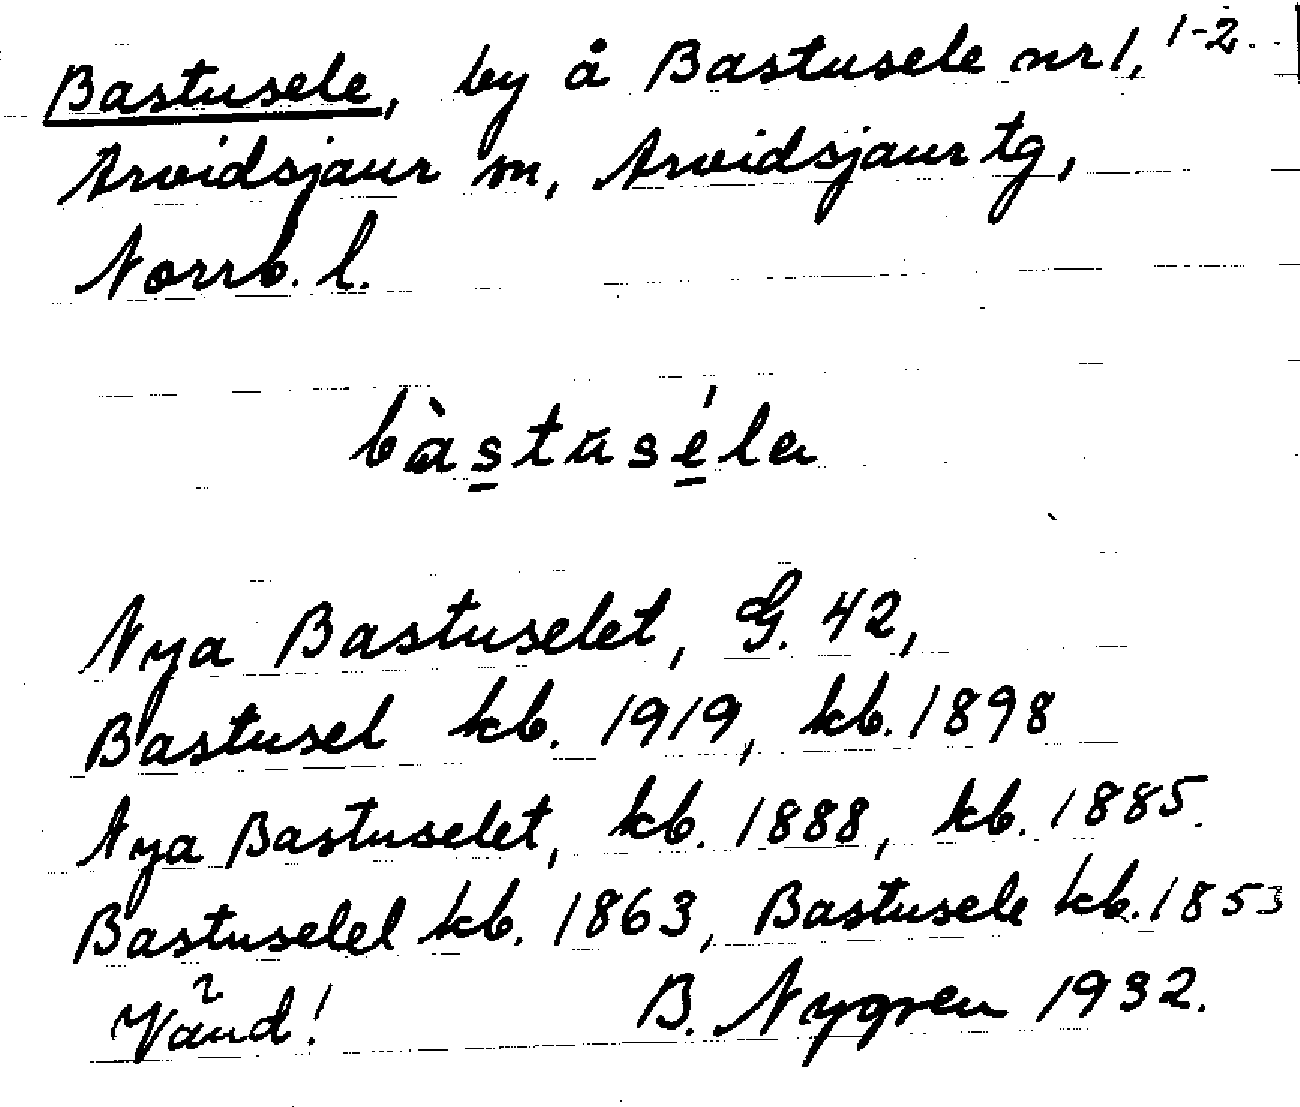 Bastusele, by å Bastusele nr 1, 1-2.
Arvidsjaur sn, Arvidsjaur tg,
Norrb. l.
bàstuséla
Nya Bastuselet, G. 42,
Bastusel kb. 1919, kb. 1898
Nya Bastuselet, kb. 1888, kb. 1885.
Bastuselel kb. 1863, Bastusele kb. 1853
Vänd! B. Nygren 1932.